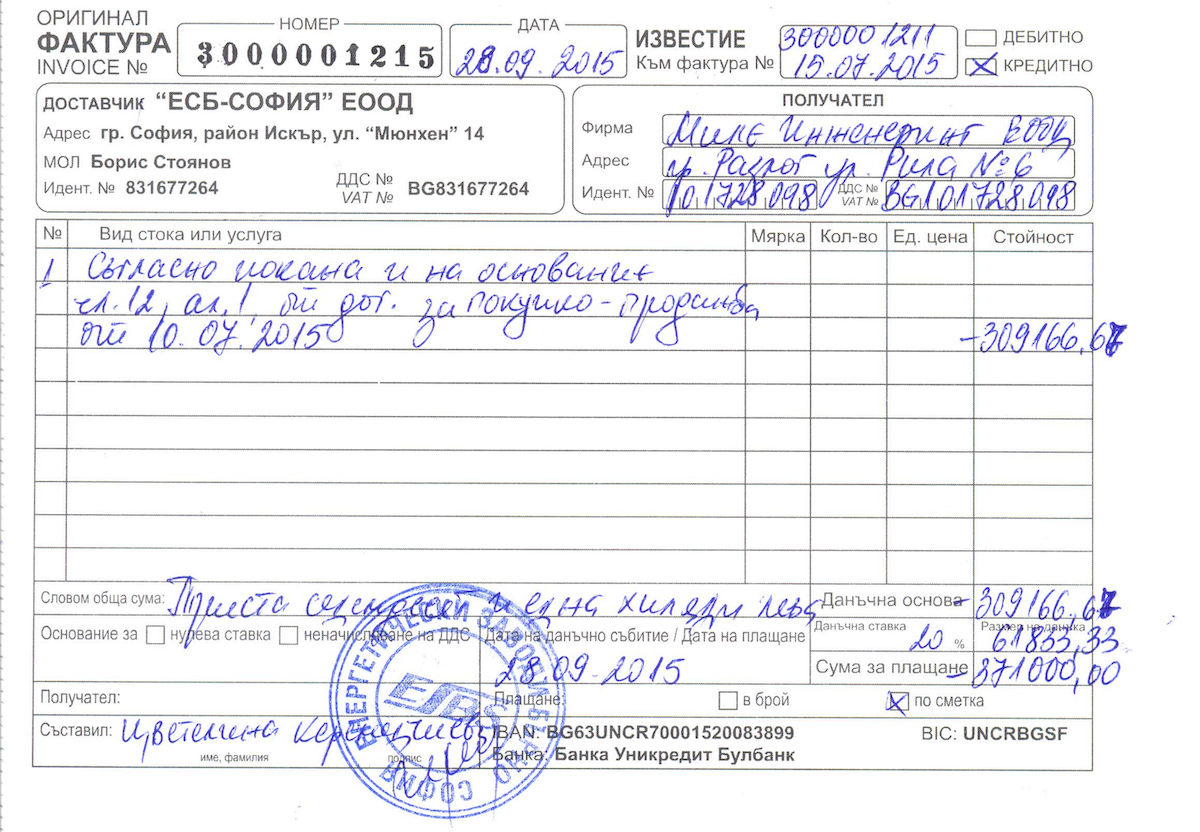 ОРИГИНАЛ
ФАКТУРА
INVOICE №
НОМЕР
3000001215
ДАТА
28.09.2015
ИЗВЕСТИЕ
Към фактура №
3000001211
15.07.2015
ДЕБИТНО
КРЕДИТНО
ДОСТАВЧИК “ЕСБ-СОФИЯ” ЕООД
Адрес гр. София, район Искър, ул. “Мюнхен” 14
МОЛ Борис Стоянов
Идент. № 831677264
ДДС №
VAT №
BG831677264
ПОЛУЧАТЕЛ
Фирма Миле Инженеринг ЕООД
Адрес гр. Разлог ул. Рила № 6
Идент. № 101728098
ДДС №
VAT №
BG101728098
№ Вид стока или услуга Мярка Кол-во Ед. цена Стойност
1 Съгласно покана и на основание
чл.12, ал.1 от дог. за покупко-продажба
от 10.07.2015 -309166,67
Словом обща сума: Триста седемдесет и една хиляди лева
Данъчна основа -309166,67
Основание за нулева ставка неначисляване на ДДС
Дата на данъчно събитие / Дата на плащане
28.09.2015
Данъчна ставка 20 % Размер на данъка 61833,33
Сума за плащане -371000,00
Получател:
Плащане: в брой по сметка
Съставил: Цветелина
име, фамилия
подпис
IBAN: BG63UNCR70001520083899
BIC: UNCRBGSF
Банка: Банка Уникредит Булбанк
ЕНЕРГЕТИЧЕСКИ ЗАВОДИ БЪРНО
СОФИЯ